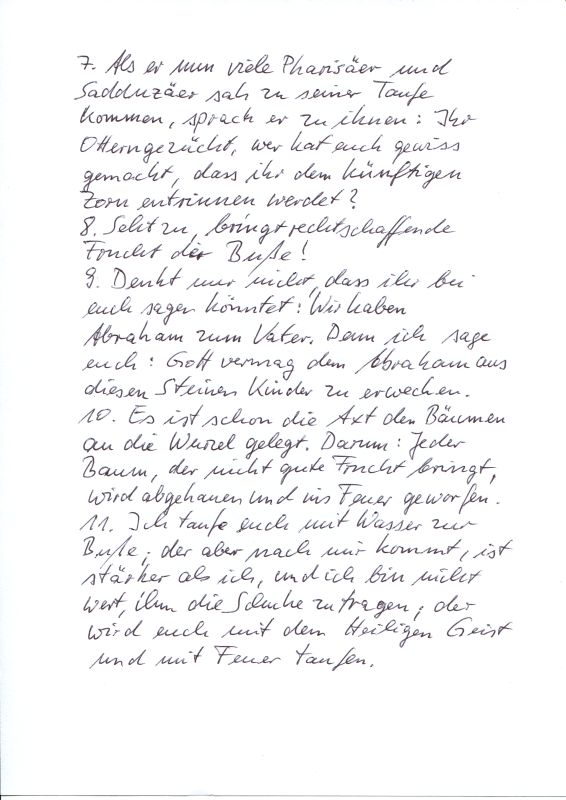 7. Als er nun viele Pharisäer und
Sadduzäer sah zu seiner Taufe
kommen, sprach er zu ihnen: Ihr
Otterngezücht, wer hat euch gewiss
gemacht, dass ihr dem künftigen
Zorn entrinnen werdet?
8. Seht zu, bringt rechtschaffende
Frucht der Buße!
9. Denkt nur nicht, dass ihr bei
euch sagen könntet: Wir haben
Abraham zum Vater. Denn ich sage
euch: Gott vermag dem Abraham aus
diesen Steinen Kinder zu erwecken.
10. Es ist schon die Axt den Bäumen
an die Wurzel gelegt. Darum: Jeder
Baum, der nicht gute Frucht bringt,
wird abgehauen und ins Feuer geworfen.
11. Ich taufe euch mit Wasser zur
Buße; der aber nach mir kommt, ist
stärker als ich, und ich bin nicht
wert, ihm die Schuhe zu tragen; der
wird euch mit dem Heiligen Geist
und mit Feuer taufen.